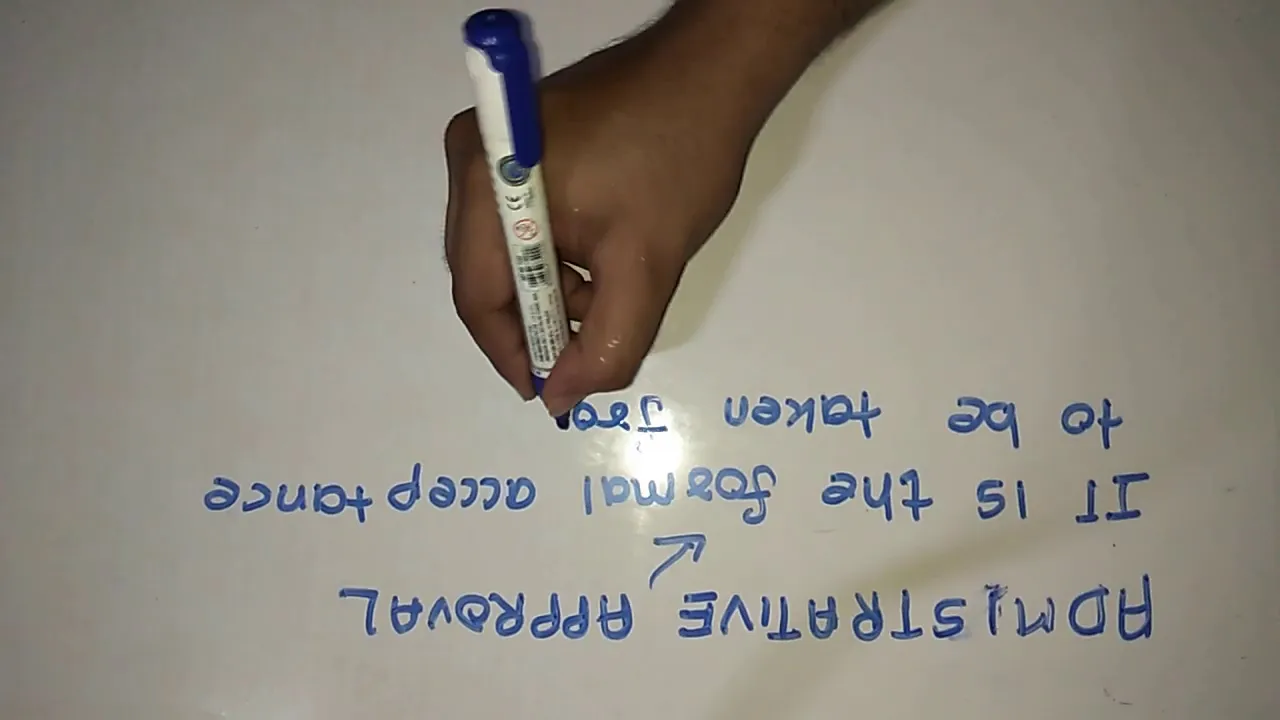 ADMISTRATIVE APPROVAL
It is the formal acceptance
to be taken fro